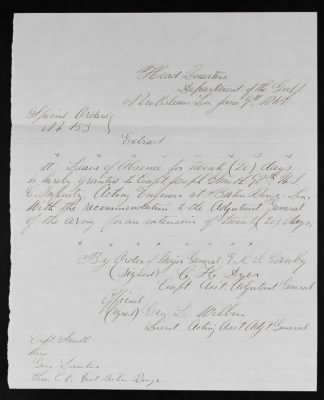 Head Quarters
Department of the Gulf
New Orleans La June 9th 1865
Special Orders
No 153
Extract
" Leave of Absence for twenty (20) days
is hereby granted to Capt Joseph Smith
C. Infantry Acting Engineer at Baton Rouge La.
With the recommendation to the Adjutant General
of the Army for an extension of twenty (20) days.
" " " " " "
By Order of Major General E. R. S. Canby
(Signed) C. H. Dyer
Capt Ass't Adjutant General
Official
(Signed)
Lieut. Acting Ass't Adj't General
Capt. Smith
Thro